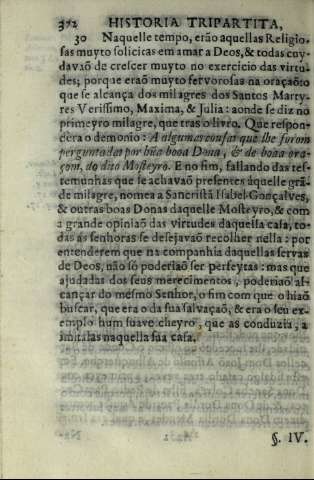 372 HISTORIA TRIPARTITA,
30 Naquelle tempo, erão aquellas Religio-
sas muyto solicitas em amar a Deos, & todas cuy-
davaõ de crescer muyto no exercicio das virtu-
des; porque eraõ muyto fervorosas na oraçaõ: o
que se alcança dos milagres dos Santos Marty-
res Verissimo, Maxima, & Julia: aonde se diz no
primeyro milagre, que tras o livro. Que respon-
dera o demonio: A algumas cousas que lhe foram
perguntadas por hũa boaa Dona, & de boaa ora-
çom, do dito Mosteyro. E no fim, fallando das tes-
temunhas que se achavaõ presentes àquelle grã-
de milagre, nomea a Sancristã Isabel Gonçalves,
& outras boas Donas daquelle Mosteyro, & com
a grande opiniaõ das virtudes daquella casa, to-
das as senhoras se desejavaõ recolher nella: por
entenderem que na companhia daquellas servas
de Deos, não só poderiaõ ser perfeytas: mas que
ajudadas dos seus merecimentos, poderiaõ al-
cançar do mesmo Senhor, o fim com que o hiaõ
buscar, que era o da sua salvaçaõ, & era o seu ex-
emplo hum suave cheyro, que as conduzia, a
imitalas naquella sua casa.
§. IV.